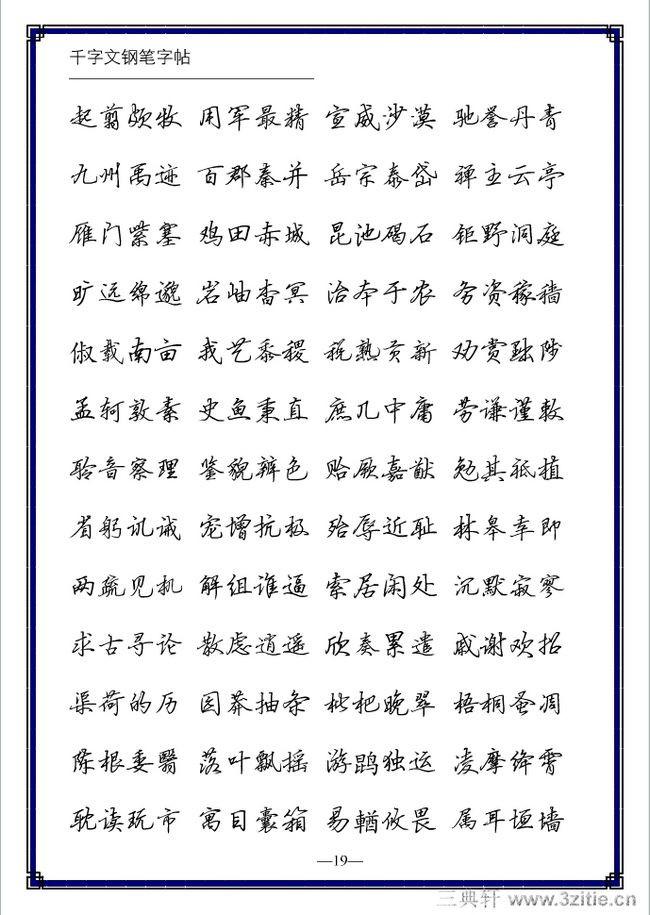 千字文钢笔字帖
起翦颇牧 用军最精 宣威沙漠 驰誉丹青
九州禹迹 百郡秦并 岳宗泰岱 禅主云亭
雁门紫塞 鸡田赤城 昆池碣石 钜野洞庭
旷远绵邈 岩岫杳冥 治本于农 务资稼穑
俶载南亩 我艺黍稷 税熟贡新 劝赏黜陟
孟轲敦素 史鱼秉直 庶几中庸 劳谦谨敕
聆音察理 鉴貌辨色 贻厥嘉猷 勉其祗植
省躬讥诫 宠增抗极 殆辱近耻 林皋幸即
两疏见机 解组谁逼 索居闲处 沉默寂寥
求古寻论 散虑逍遥 欣奏累遣 戚谢欢招
渠荷的历 园莽抽条 枇杷晚翠 梧桐蚤凋
陈根委翳 落叶飘摇 游鹍独运 凌摩绛霄
耽读玩市 寓目囊箱 易輶攸畏 属耳垣墙
—19—
三典轩 www.3zitie.cn